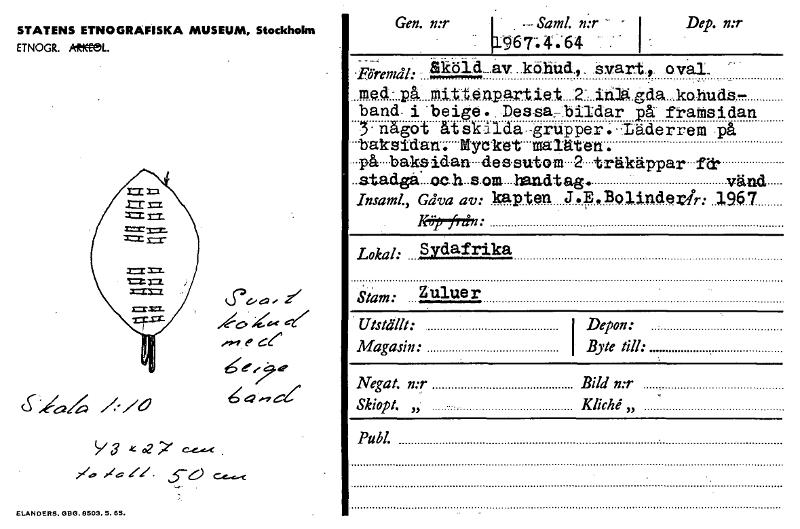 STATENS ETNOGRAFISKA MUSEUM, Stockholm
ETNOGR. ARKEOL.
Svart
kohud
med
beige
band
Skala 1:10
43 x 27 cm.
totall. 50 cm
ELANDERS. GBG. 8503. 5. 65.
Gen. n:r Saml. n:r Dep. n:r
1967.4.64
Föremål: Sköld av kohud, svart, oval
med på mittenpartiet 2 inlagda kohuds-
band i beige. Dessa bildar på framsidan
3 något åtskilda grupper. Läderrem på
baksidan. Mycket maläten.
på baksidan dessutom 2 träkäppar för
stadga och som handtag. vänd
Insaml., Gåva av: kapten J.E.Bolinder År: 1967
Köp från:
Lokal: Sydafrika
Stam: Zuluer
Utställt: Depon:
Magasin: Byte till:
Negat. n:r Bild n:r
Skiopt. „ Kliché „
Publ.